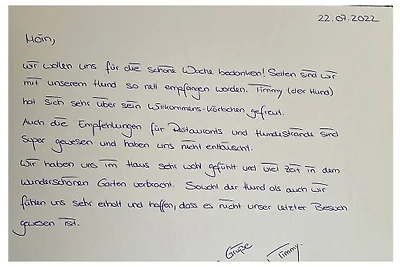 22.07.2022
Moin,
wir wollen uns für die schöne Woche bedanken! Selten sind wir
mit unserem Hund so nett empfangen worden. Timmy (der Hund)
hat sich sehr über sein Willkommens-Körbchen gefreut.
Auch die Empfehlungen für Restaurants und Hundestrände sind
super gewesen und haben uns nicht enttäuscht.
Wir haben uns im Haus sehr wohl gefühlt und viel Zeit in dem
wunderschönen Garten verbracht. Sowohl der Hund als auch wir
fühlen uns sehr erholt und hoffen, dass es nicht unser letzter Besuch
gewesen ist.
Grüße
Timmy